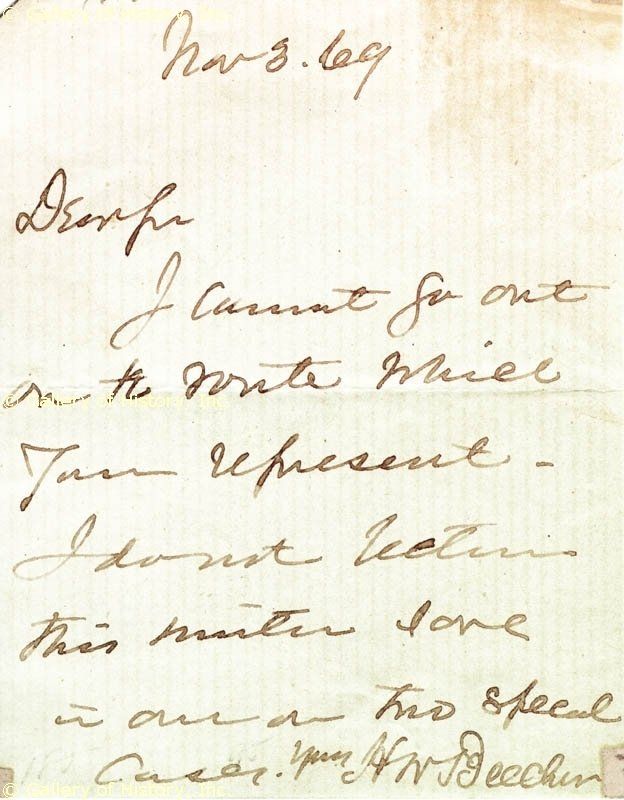 © Gallery of History, Inc.
Nov 3. 69
Dear Sir
I cannot go out
on the route which
© Gallery of History, Inc.
You represent -
I do not lecture
this winter save
in one or two special
cases. Yours H W Beecher
© Gallery of History, Inc.